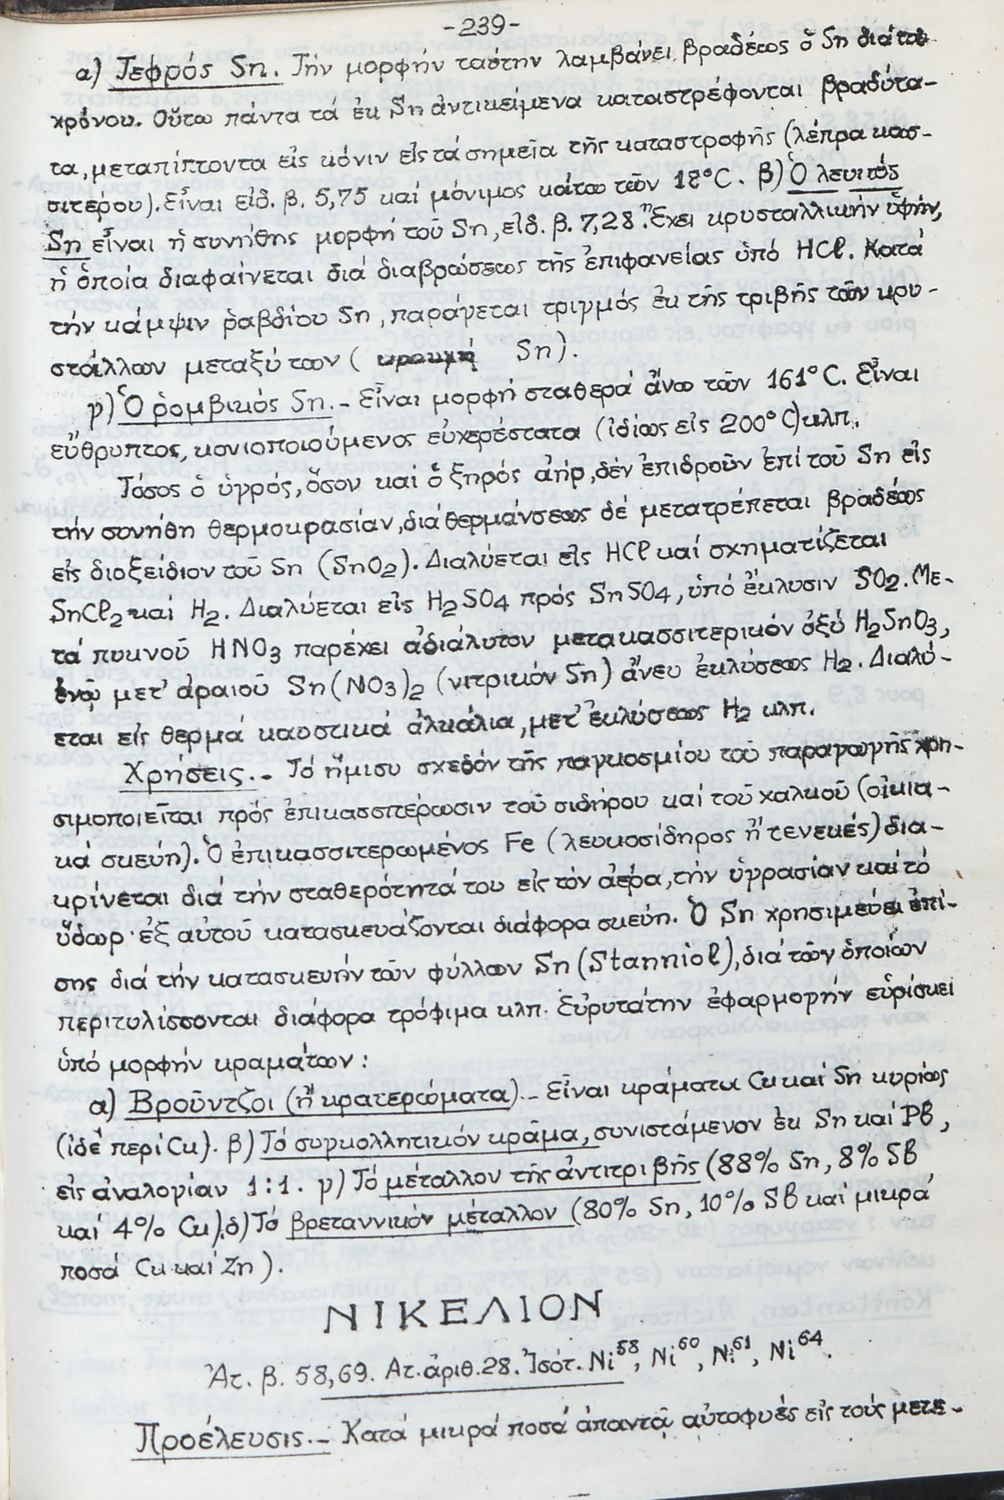 -239-
α) Τεφρός Sn. Τήν μορφήν ταύτην λαμβάνει βραδέως ὁ Sn διά τοῦ
χρόνου. Οὕτω πάντα τά ἐκ Sn ἀντικείμενα καταστρέφονται βραδύτα-
τα, μεταπίπτοντα εἰς κόνιν εἰς τά σημεῖα τῆς καταστροφῆς (λέπρα κασ-
σιτέρου). Εἶναι εἰδ. β. 5,75 καί μόνιμος κάτω τῶν 18°C. β) Ὁ λευκός
Sn εἶναι ἡ συνήθης μορφή τοῦ Sn, εἰδ. β. 7,28. Ἔχει κρυσταλλικήν ὑφήν,
ἡ ὁποία διαφαίνεται διά διαβρώσεως τῆς ἐπιφανείας ὑπό HCl. Κατά
τήν κάμψιν ῥαβδίου Sn, παράγεται τριγμός ἐκ τῆς τριβῆς τῶν κρυ-
στάλλων μεταξύ των (κραυγή Sn).
γ) Ὁ ῥομβικός Sn.- Εἶναι μορφή σταθερά ἄνω τῶν 161°C. Εἶναι
εὔθρυπτος, κονιοποιούμενος εὐχερέστατα (ἰδίως εἰς 200°C) κλπ.
Τόσος ὁ ὑγρός, ὅσον καί ὁ ξηρός ἀήρ, δέν ἐπιδροῦν ἐπί τοῦ Sn εἰς
τήν συνήθη θερμοκρασίαν, διά θερμάνσεως δέ μετατρέπεται βραδέως
εἰς διοξείδιον τοῦ Sn (SnO2). Διαλύεται εἰς HCl καί σχηματίζεται
SnCl2 και H2. Διαλυεται εἰς H2SO4 πρός SnSO4, ὑπό ἔκλυσιν SO2. Με-
τά πυκνοῦ HNO3 παρέχει ἀδιάλυτον μετακασσιτερικόν ὀξύ H2SnO3,
ἐνῷ μετ' ἀραιοῦ Sn(NO3)2 (νιτρικόν Sn) ἄνευ ἐκλύσεως H2. Διαλύ-
εται εἰς θερμά καυστικά ἀλκάλια, μετ' ἐκλύσεως H2 κλπ.
Χρήσεις.- Τό ἥμισυ σχεδόν τῆς παγκοσμίου τοῦ παραγωγῆς χρη-
σιμοποιεῖται πρός ἐπικασσιτέρωσιν τοῦ σιδήρου καί τοῦ χαλκοῦ (οἰκια-
κά σκεύη). Ὁ ἐπικασσιτερωμένος Fe (λευκοσίδηρος ἤ τενεκές) δια-
κρίνεται διά τήν σταθερότητά του εἰς τόν ἀέρα, τήν ὑγρασίαν καί τό
ὕδωρ· ἐξ αὐτοῦ κατασκευάζονται διάφορα σκεύη. Ὁ Sn χρησιμεύει ἐπί-
σης διά τήν κατασκευήν τῶν φύλλων Sn (Stanniol), διά τῶν ὁποίων
περιτυλίσσονται διάφορα τρόφιμα κλπ. Εὐρυτάτην ἐφαρμογήν εὑρίσκει
ὑπό μορφήν κραμάτων:
α) Βροῦντζοι (ἤ κρατερώματα).- Εἶναι κράματα Cu καί Sn κυρίως
(ἰδέ περί Cu). β) Τό συγκολλητικόν κρᾶμα, συνιστάμενον ἐκ Sn καί Pb,
εἰς ἀναλογίαν 1:1. γ) Τό μέταλλον τῆς ἀντιτριβῆς (88% Sn, 8% Sb
καί 4% Cu). δ) Τό βρεταννικόν μέταλλον (80% Sn, 10% Sb καί μικρά
ποσά Cu καί Zn).
ΝΙΚΕΛΙΟΝ
Ἀτ. β. 58,69. Ατ. ἀριθ. 28. Ἰσότ. Ni58, Ni60, Ni61, Ni64.
Προέλευσις.- Κατά μικρά ποσά ἀπαντᾷ αὐτοφυές εἰς τούς μετε-